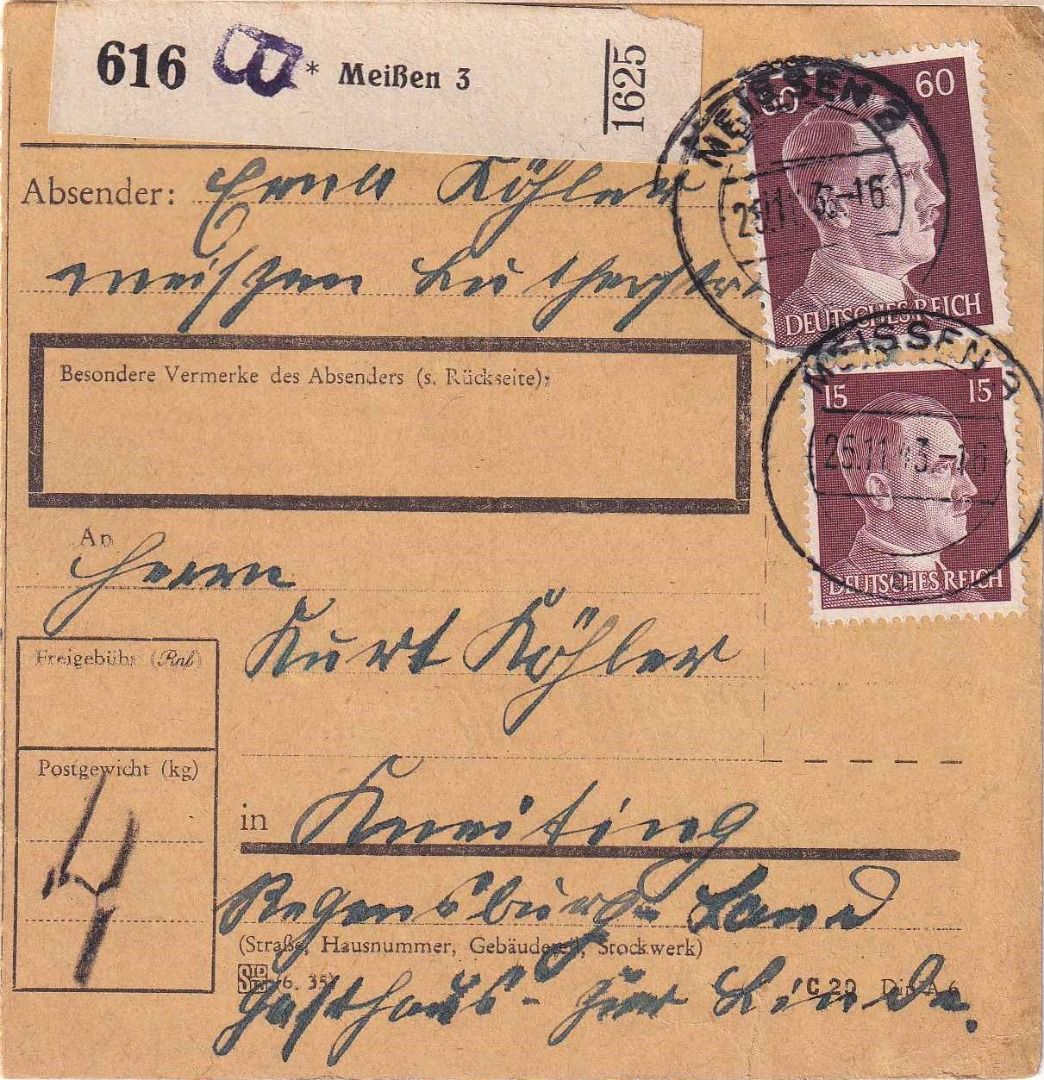 616 B * Meißen 3
1625
MEISSEN 3
25.11.43.-16
60 60
DEUTSCHES REICH
Absender: Erna Köhler
Meißen Lutherstr.
Besondere Vermerke des Absenders (s. Rückseite):
MEISSEN 3
25.11.43.-16
15 15
DEUTSCHES REICH
An
Herrn
Kurt Köhler
Freigebühr (Rnf)
Postgewicht (kg)
4
in Kneiting
Regensburg-Land
(Straße, Hausnummer, Gebäudeteil, Stockwerk)
(6. 35) C 20 Din A 6
Gasthaus-zur Linde.